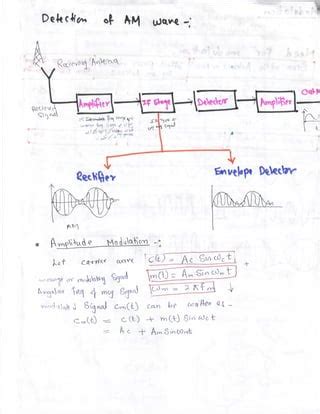 Detection of AM wave -:
Recieving Antena
Recieved
Signal
Amplifier
IF Stage
Detector
Amplifier
Rectifier
Envelope Detector
AM
• Amplitude Modulation -:
Let carrier wave c(t) = Ac Sin ωc t
message or modulating Signal m(t) = Am Sin ωm t
Angular freq of msg Signal ωm = 2πfm
Signal Cm(t) can be written as -
Cm(t) = c(t) + m(t) Sin ωc t
= Ac + Am Sin ωm t